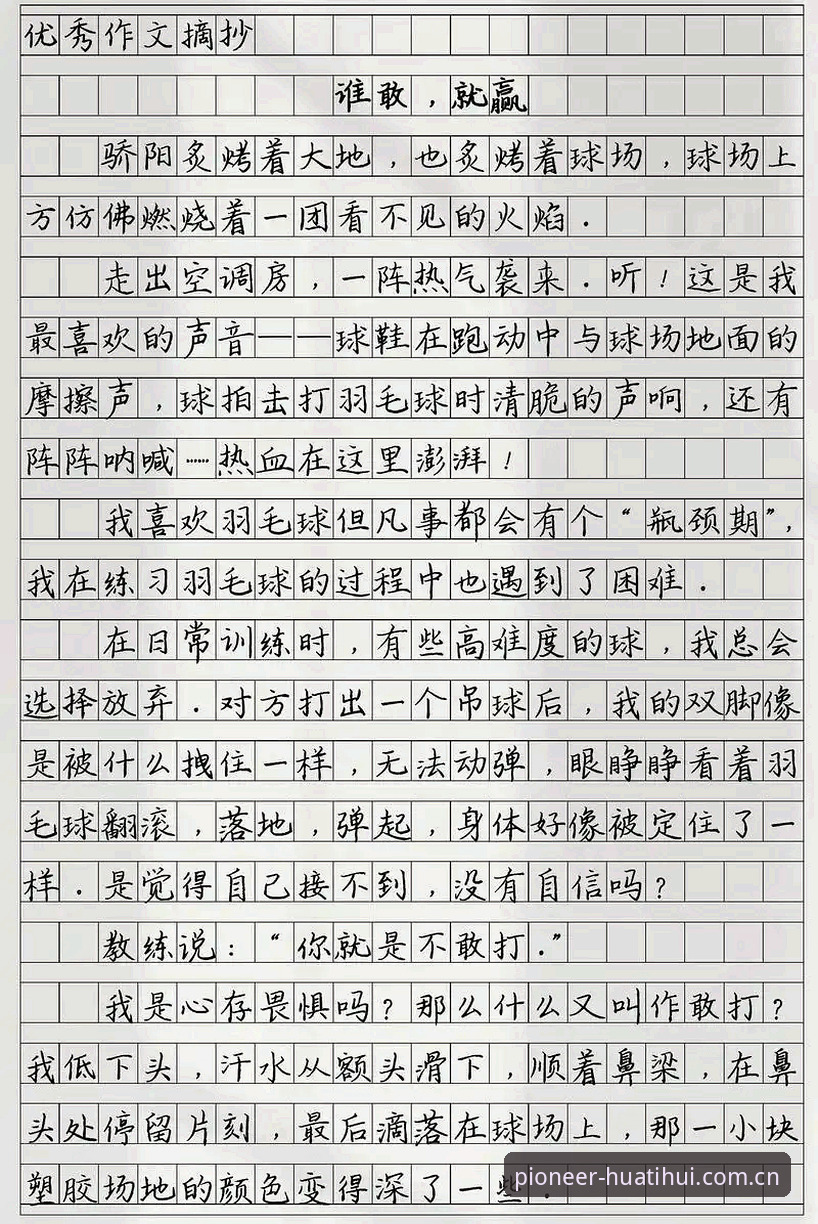 优秀作文摘抄
谁敢，就赢
骄阳炙烤着大地，也炙烤着球场，球场上
方仿佛燃烧着一团看不见的火焰．
走出空调房，一阵热气袭来．听！这是我
最喜欢的声音——球鞋在跑动中与球场地面的
摩擦声，球拍击打羽毛球时清脆的声响，还有
阵阵呐喊……热血在这里澎湃！
我喜欢羽毛球但凡事都会有个“瓶颈期”，
我在练习羽毛球的过程中也遇到了困难．
在日常训练时，有些高难度的球，我总会
选择放弃．对方打出一个吊球后，我的双脚像
是被什么拽住一样，无法动弹，眼睁睁看着羽
毛球翻滚，落地，弹起，身体好像被定住了一
样．是觉得自己接不到，没有自信吗？
教练说：“你就是不敢打．”
我是心存畏惧吗？那么什么又叫作敢打？
我低下头，汗水从额头滑下，顺着鼻梁，在鼻
头处停留片刻，最后滴落在球场上，那一小块
塑胶场地的颜色变得深了一些．
pioneer-huatihui.com.cn